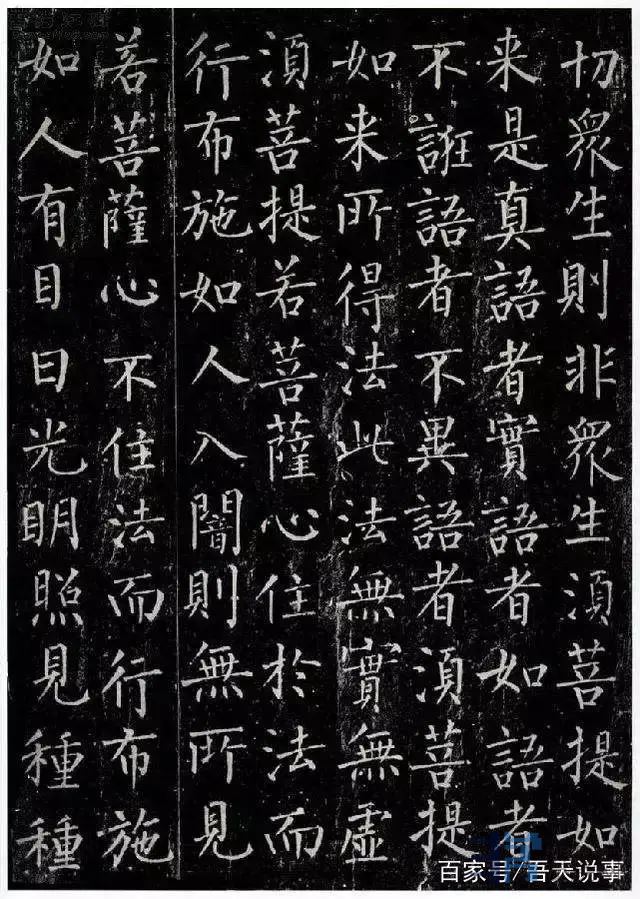 切眾生則非眾生須菩提如
来是真語者實語者如語者
不誑語者不異語者須菩提
如来所得法此法無實無虛
須菩提若菩薩心住於法而
行布施如人入闇則無所見
若菩薩心不住法而行布施
如人有目日光明照見種種
百家号/吾天说事